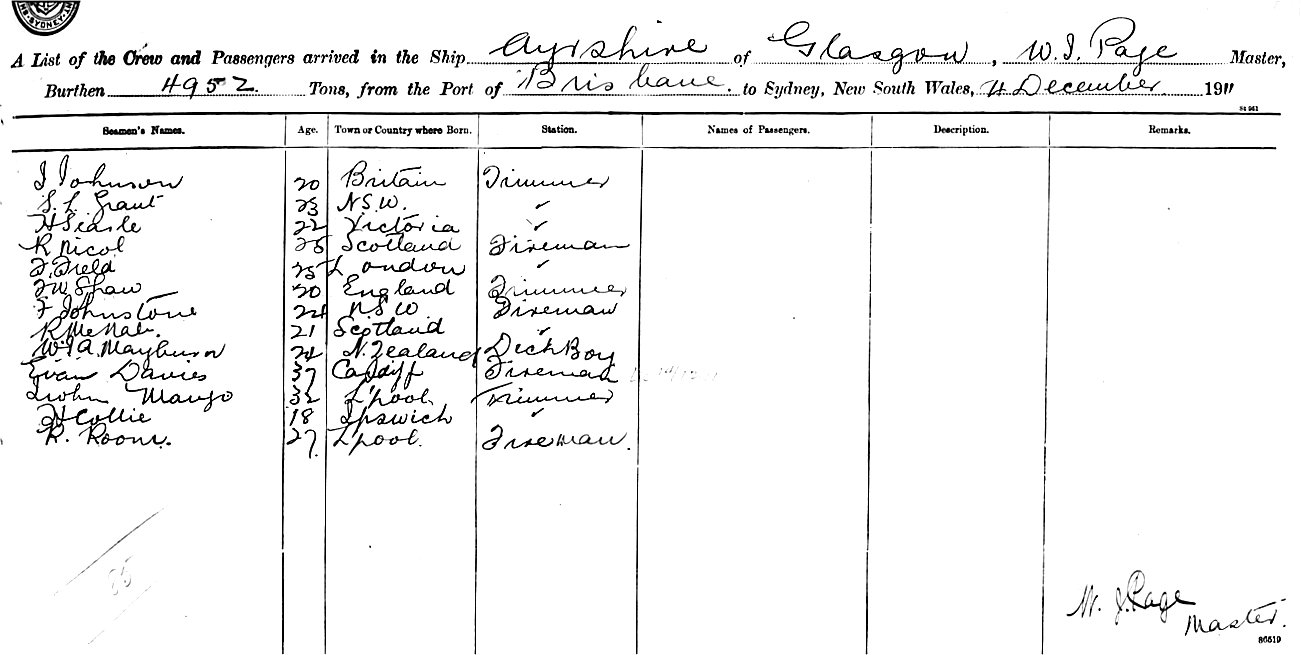 SYDNEY
A List of the Crew and Passengers arrived in the Ship Ayrshire of Glasgow, W. J. Page Master,
Burthen 4952 Tons, from the Port of Brisbane to Sydney, New South Wales, 4 December 1911
St 961
Seamen's Names. Age. Town or Country where Born. Station. Names of Passengers. Description. Remarks.
J Johnson 20 Britain Trimmer
S. L. Grant 23 N.S.W. ✓
H Searle 22 Victoria ✓
R Nicol 25 Scotland Fireman
F. Field 25 London ✓
F W Shaw 20 England Trimmer
F Johnstone 24 N.S.W. Fireman
R McNab. 21 Scotland ✓
W. A. 24 N. Zealand Deck Boy
Evan Davies 37 Cardiff Fireman
John 32 L'pool Trimmer
H Collie 18 Ipswich ✓
R. Room. 27. L'pool. Fireman.
85
W. J. Page
Master.
86519